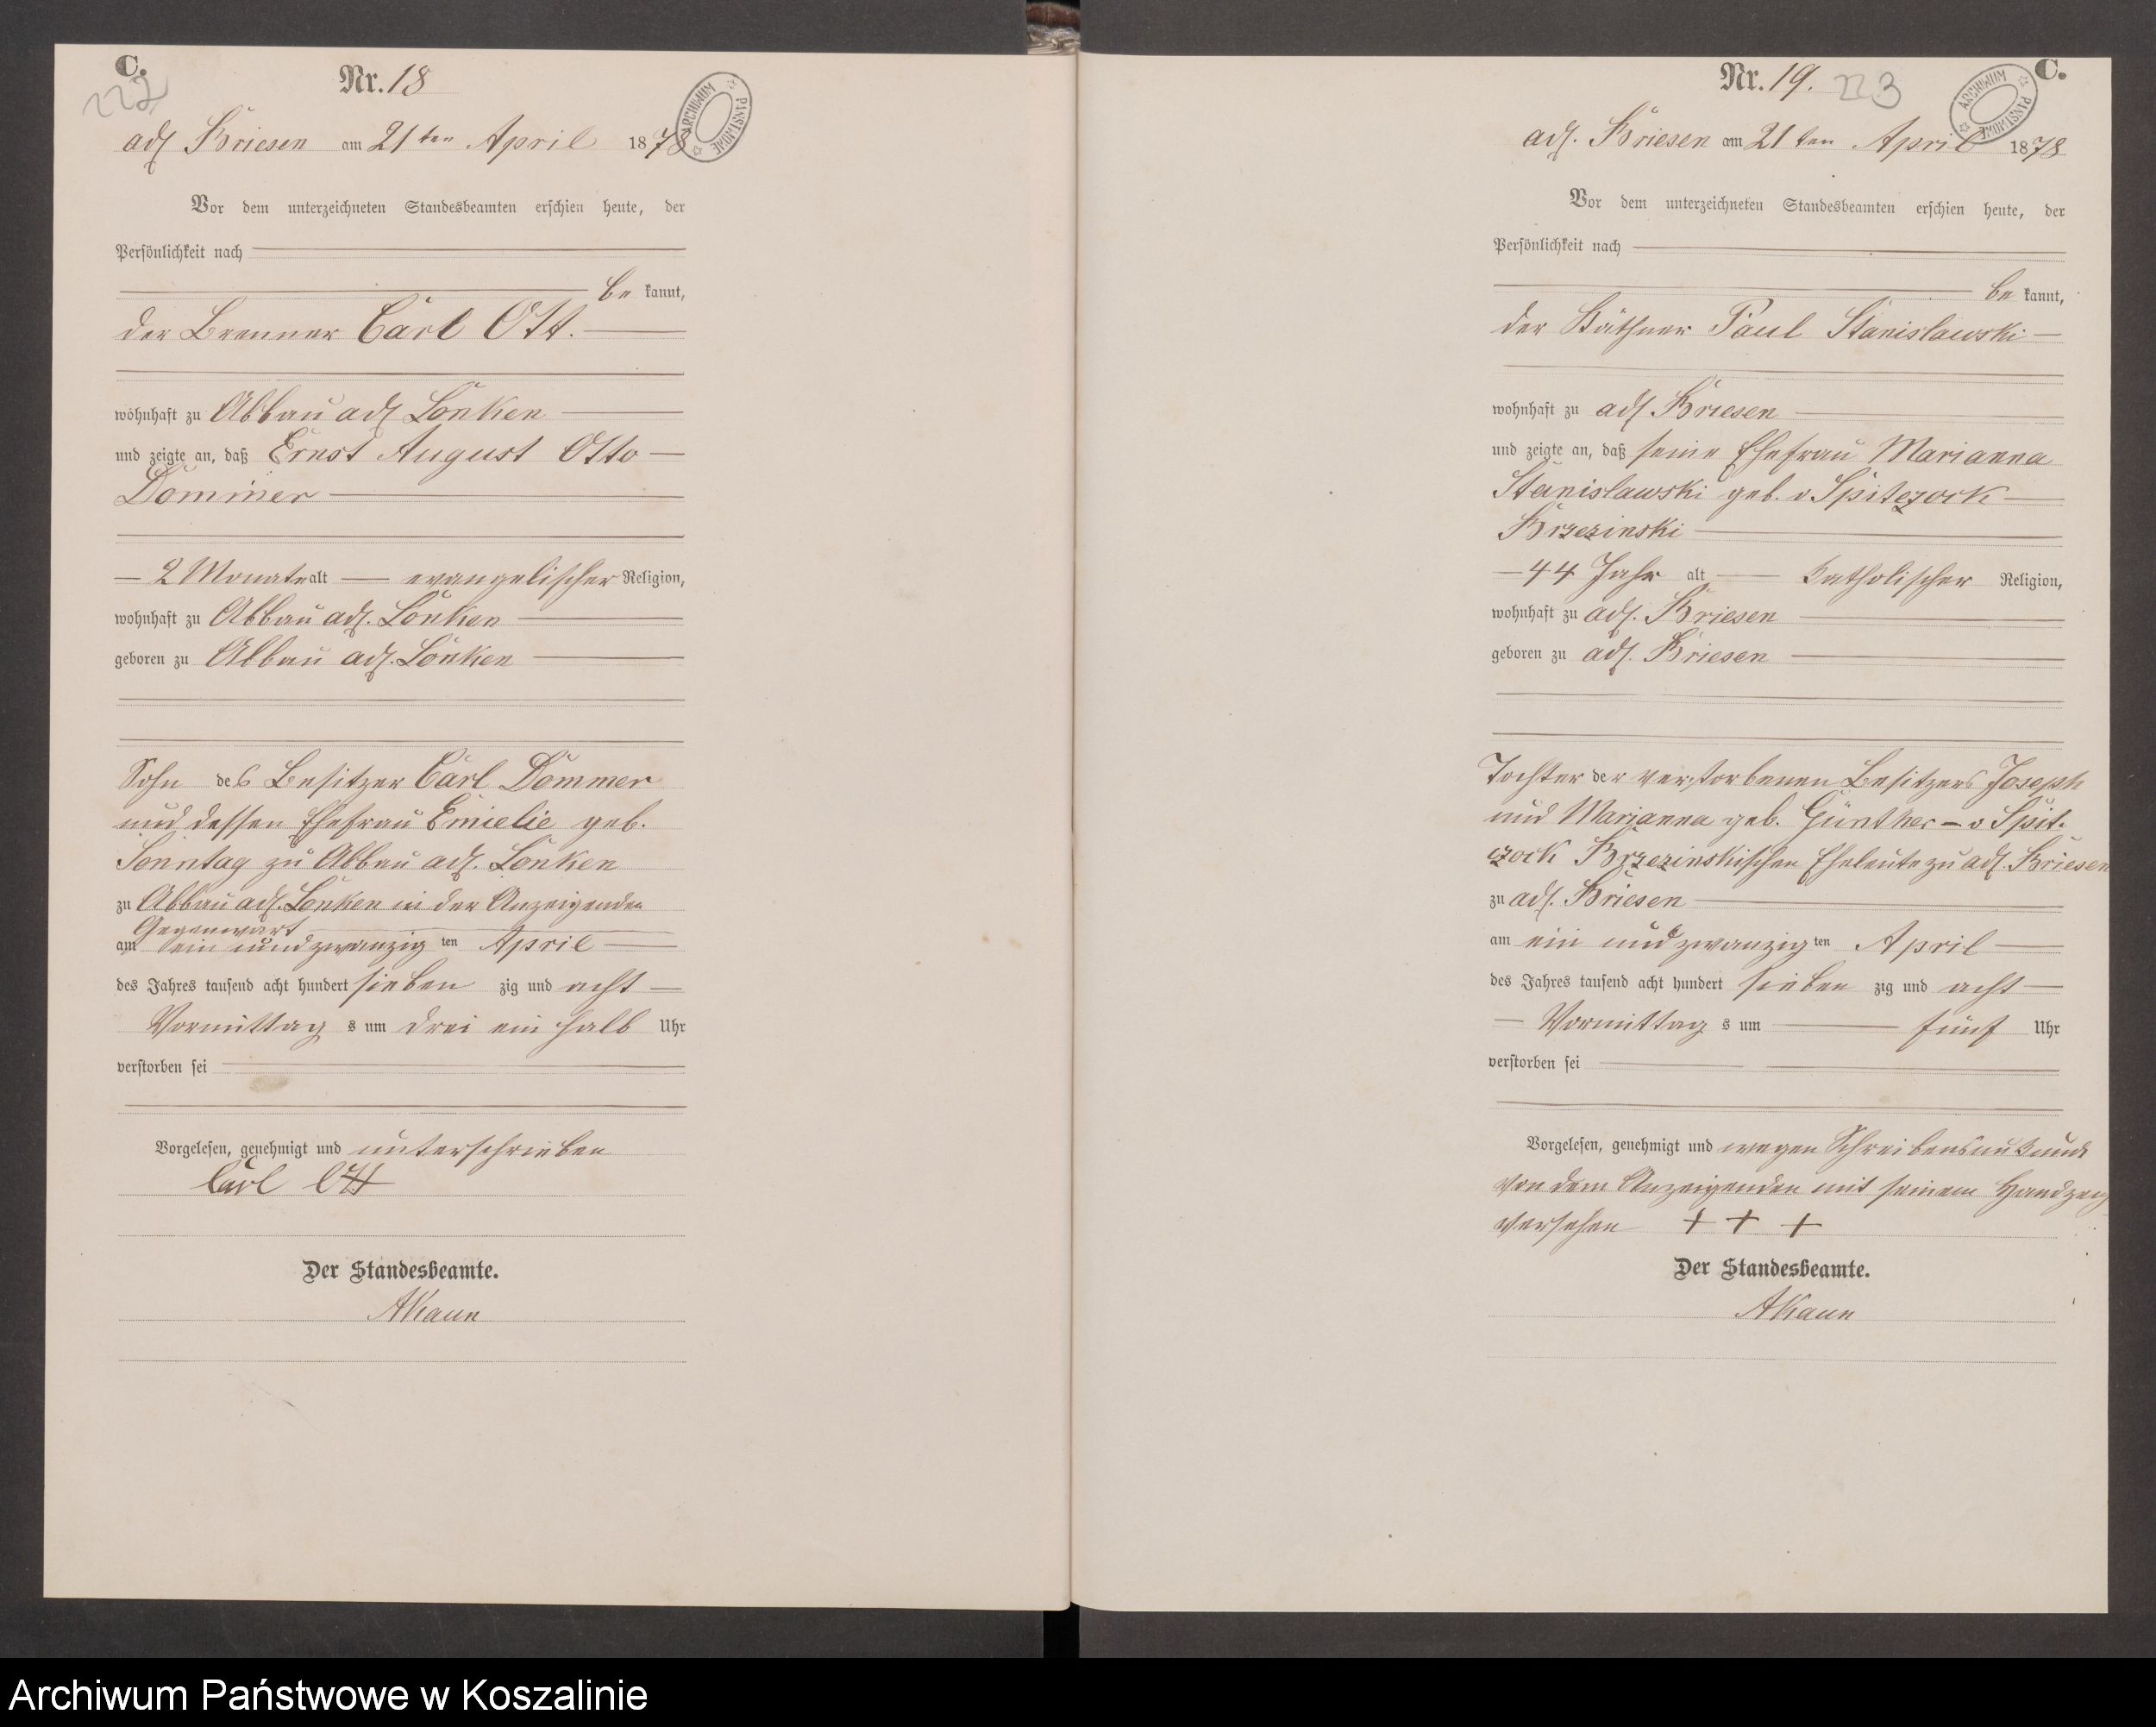 C.
222
Nr. 18
adl Briesen am 21ten April 1878
ARCHIWUM PAŃSTWOWE
Vor dem unterzeichneten Standesbeamten erschien heute, der
Persönlichkeit nach
bekannt,
der Brenner Carl Ott.
wohnhaft zu Abbau adl Lonken
und zeigte an, daß Ernst August Otto
Dommer
2 Monate alt evangelischer Religion,
wohnhaft zu Abbau adl. Lonken
geboren zu Abbau adl. Lonken
Sohn des Besitzer Carl Dommer
und dessen Ehefrau Emielie geb.
Sonntag zu Abbau adl. Lonken
zu Abbau adl. Lonken in der Anzeigenden
Gegenwart
am ein und zwanzig ten April
des Jahres tausend acht hundert sieben zig und acht
Vormittag s um drei ein halb Uhr
verstorben sei
Vorgelesen, genehmigt und unterschrieben
Carl Ott
Der Standesbeamte.
AKaun
C.
Nr. 19. 223
adl. Briesen am 21ten April 1878
ARCHIWUM PAŃSTWOWE
Vor dem unterzeichneten Standesbeamten erschien heute, der
Persönlichkeit nach
bekannt,
der Käthner Paul Stanislawski
wohnhaft zu adl Briesen
und zeigte an, daß seine Ehefrau Marianna
Stanislawski geb. v Spitczock
Brzezinski
44 Jahr alt katholischer Religion,
wohnhaft zu adl. Briesen
geboren zu adl. Briesen
Tochter der verstorbenen Besitzers Joseph
und Marianna geb. Günther - v Spit-
czock Brzezinskischen Eheleute zu adl. Briesen
zu adl. Briesen
am ein und zwanzig ten April
des Jahres tausend acht hundert sieben zig und acht
Vormittag s um fünf Uhr
verstorben sei
Vorgelesen, genehmigt und wegen Schreibensunkunde
von dem Anzeigenden mit seinem Handzeich
versehen + + +
Der Standesbeamte.
AKaun
Archiwum Państwowe w Koszalinie